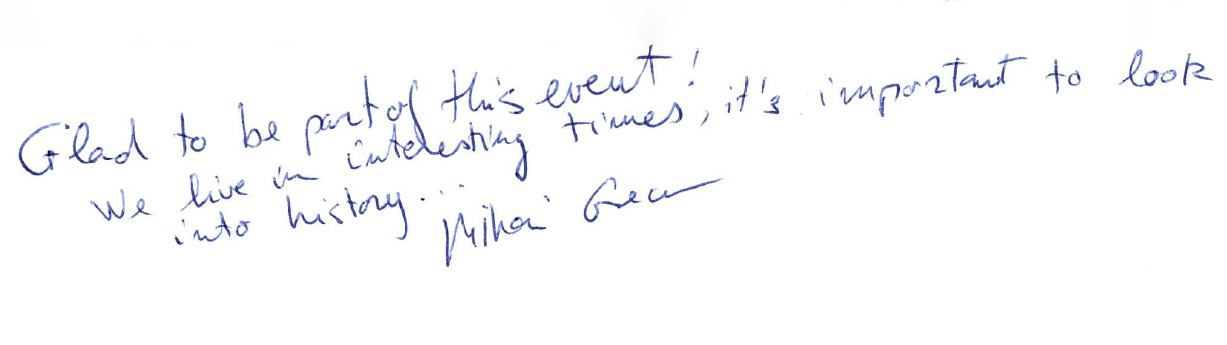 Glad to be part of this event!
We live in interesting times, it's important to look
into history...
Mihai Grecu